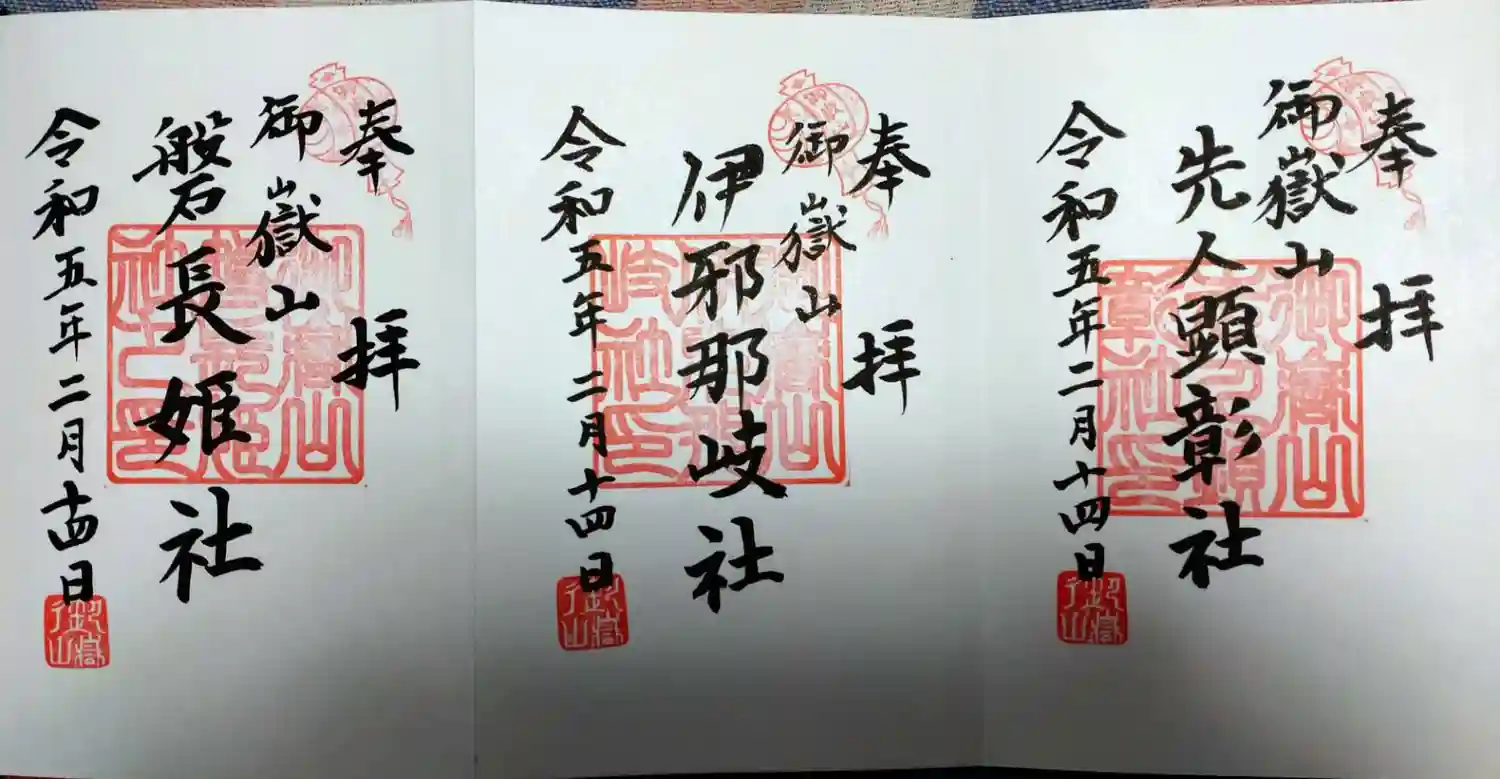 奉拝
御嶽山
先人顕彰社
令和五年二月十四日
御嶽山
奉拝
御嶽山
伊邪那岐社
令和五年二月十四日
御嶽山
奉拝
御嶽山
磐長姫社
令和五年二月十四日
御嶽山